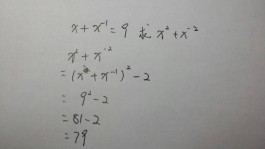 x + x⁻¹ = 9 求 x² + x⁻²
x² + x⁻²
= (x + x⁻¹)² - 2
= 9² - 2
= 81 - 2
= 79